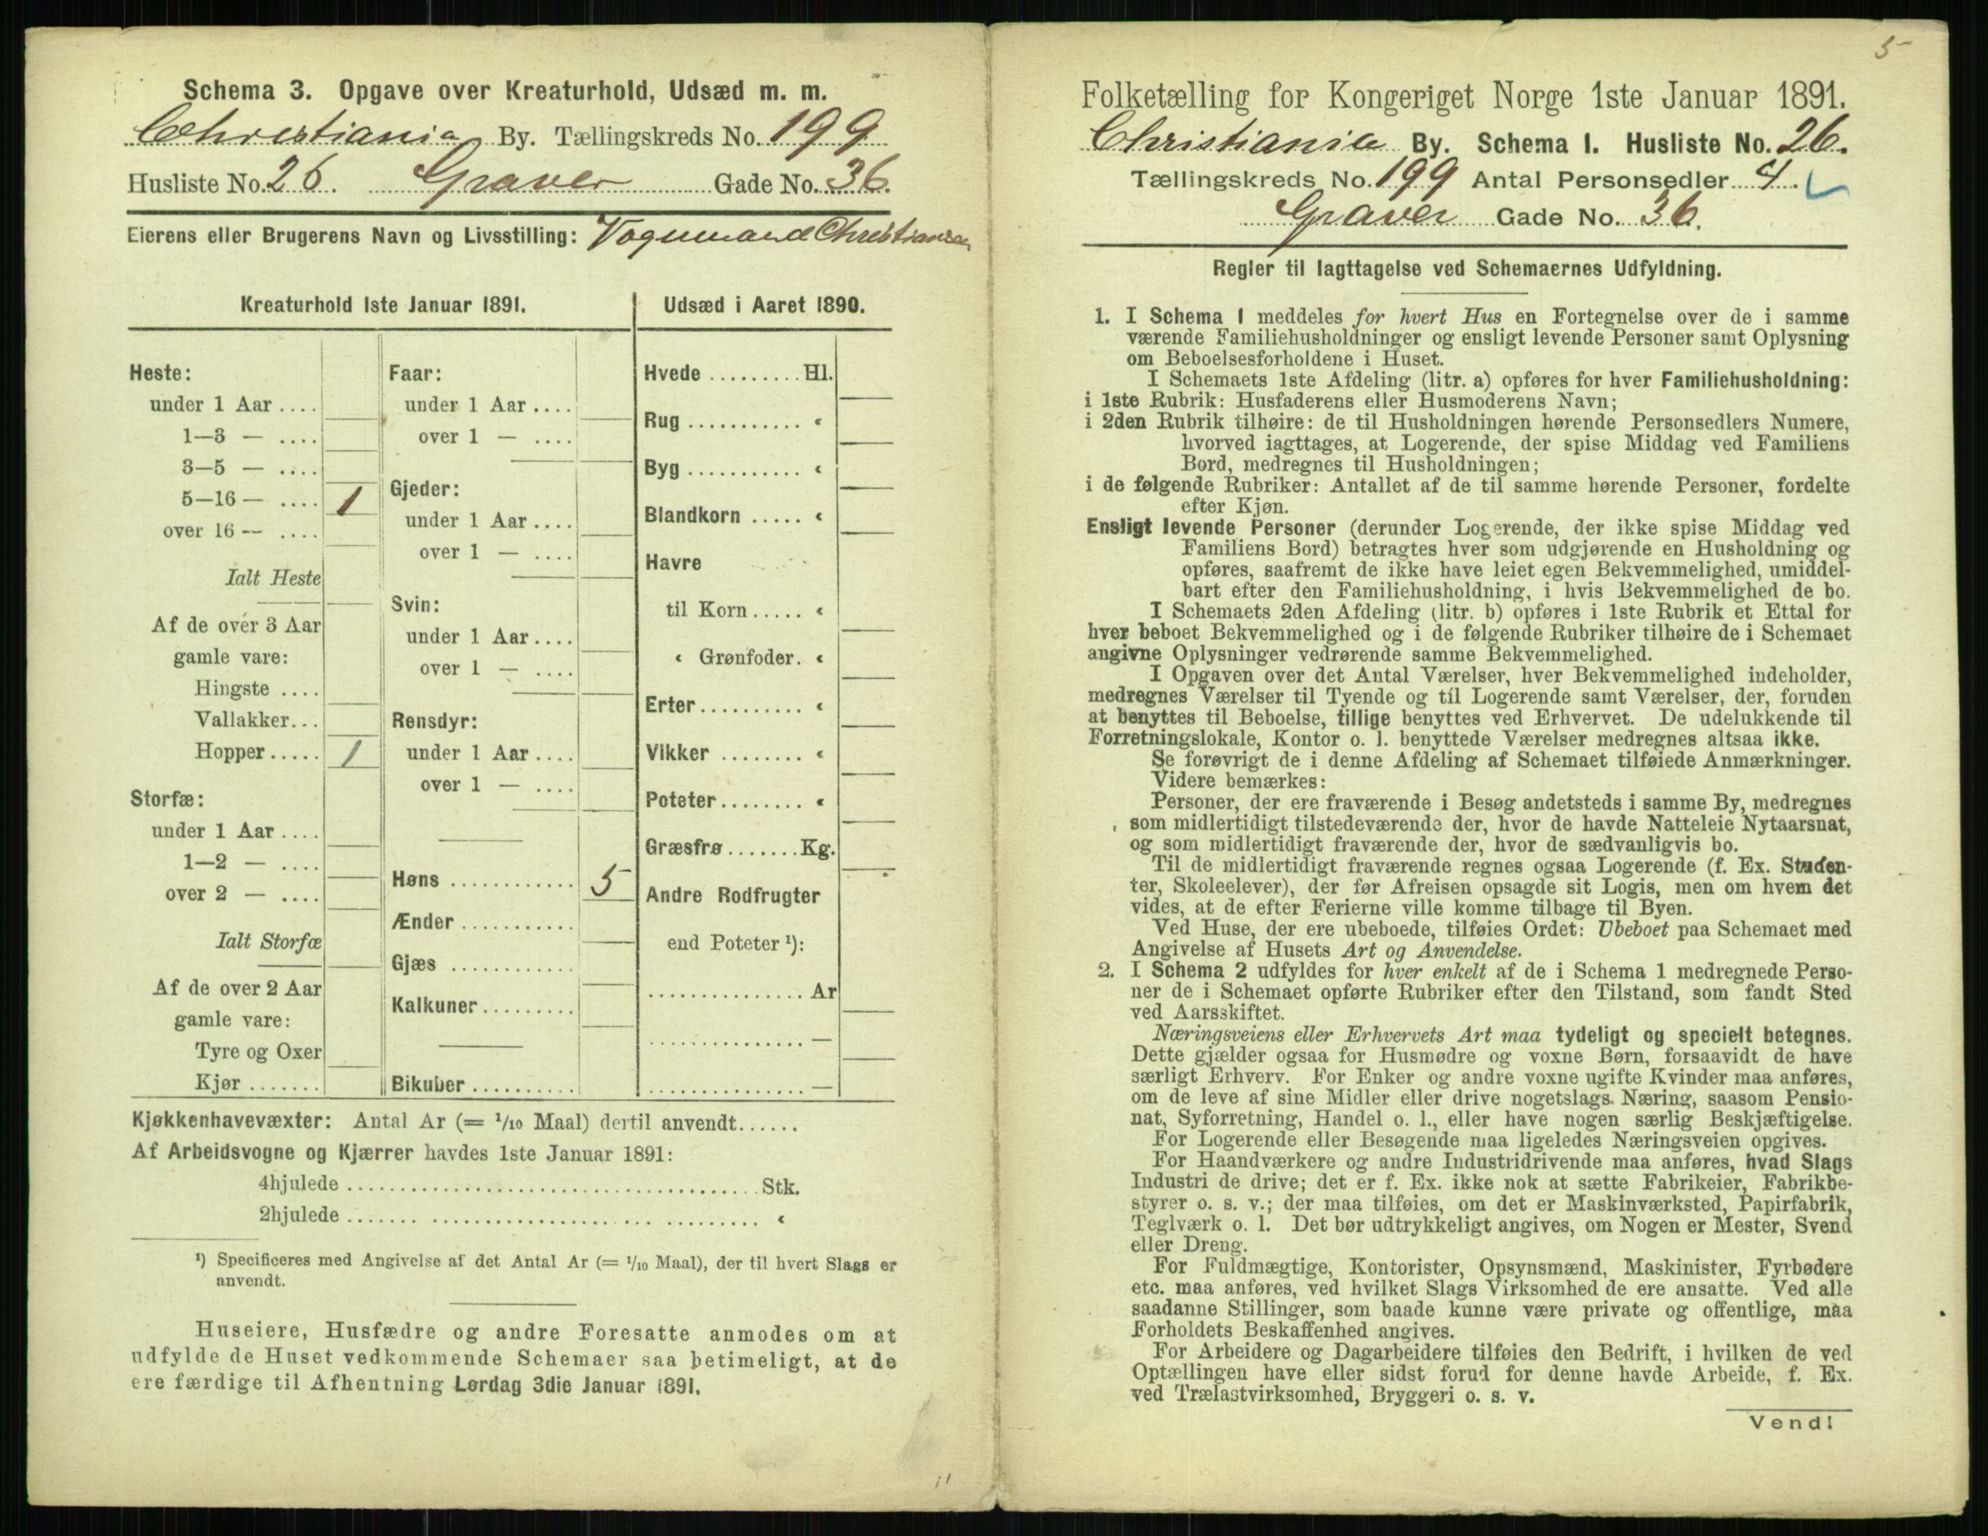 Schema 3. Opgave over Kreaturhold, Udsæd m. m.
Christiania By. Tællingskreds No. 199
Husliste No. 26. Graver Gade No. 36.
Eierens eller Brugerens Navn og Livsstilling: Vognmand Christiansen
Kreaturhold 1ste Januar 1891.
Heste:
under 1 Aar ....
1—3 — ....
3—5 — ....
5—16 — .... 1
over 16 — ....
Ialt Heste
Af de over 3 Aar
gamle vare:
Hingste ....
Vallakker...
Hopper ..... 1
Storfæ:
under 1 Aar ....
1—2 — ....
over 2 — ....
Ialt Storfæ
Af de over 2 Aar
gamle vare:
Tyre og Oxer
Kjør .......
Faar:
under 1 Aar ....
over 1 — ....
Gjeder:
under 1 Aar ....
over 1 — ....
Svin:
under 1 Aar ....
over 1 — ....
Rensdyr:
under 1 Aar ....
over 1 — ....
Høns ............ 5
Ænder ...........
Gjæs ............
Kalkuner.........
Bikuber ..........
Udsæd i Aaret 1890.
Hvede ......... Hl.
Rug ........... «
Byg ........... «
Blandkorn ..... «
Havre
til Korn ..... «
« Grønfoder. «
Erter.......... «
Vikker ........ «
Poteter........ «
Græsfrø ....... Kg.
Andre Rodfrugter
end Poteter ¹):
............... Ar
............... —
............... —
Kjøkkenhavevæxter: Antal Ar (= 1/10 Maal) dertil anvendt......
Af Arbeidsvogne og Kjærrer havdes 1ste Januar 1891:
4hjulede ....................................... Stk.
2hjulede ....................................... «
¹) Specificeres med Angivelse af det Antal Ar (= 1/10 Maal), der til hvert Slags er
anvendt.
Huseiere, Husfædre og andre Foresatte anmodes om at
udfylde de Huset vedkommende Schemaer saa betimeligt, at de
ere færdige til Afhentning Lørdag 3die Januar 1891.
5
Folketælling for Kongeriget Norge 1ste Januar 1891.
Christiania By. Schema 1. Husliste No. 26.
Tællingskreds No. 199 Antal Personsedler 4.
Graver Gade No. 36.
Regler til Iagttagelse ved Schemaernes Udfyldning.
1. I Schema 1 meddeles for hvert Hus en Fortegnelse over de i samme
værende Familiehusholdninger og ensligt levende Personer samt Oplysning
om Beboelsesforholdene i Huset.
I Schemaets 1ste Afdeling (litr. a) opføres for hver Familiehusholdning:
i 1ste Rubrik: Husfaderens eller Husmoderens Navn;
i 2den Rubrik tilhøire: de til Husholdningen hørende Personsedlers Numere,
hvorved iagttages, at Logerende, der spise Middag ved Familiens
Bord, medregnes til Husholdningen;
i de følgende Rubriker: Antallet af de til samme hørende Personer, fordelte
efter Kjøn.
Ensligt levende Personer (derunder Logerende, der ikke spise Middag ved
Familiens Bord) betragtes hver som udgjørende en Husholdning og
opføres, saafremt de ikke have leiet egen Bekvemmelighed, umiddel-
bart efter den Familiehusholdning, i hvis Bekvemmelighed de bo.
I Schemaets 2den Afdeling (litr. b) opføres i 1ste Rubrik et Ettal for
hver beboet Bekvemmelighed og i de følgende Rubriker tilhøire de i Schemaet
angivne Oplysninger vedrørende samme Bekvemmelighed.
I Opgaven over det Antal Værelser, hver Bekvemmelighed indeholder,
medregnes Værelser til Tyende og til Logerende samt Værelser, der, foruden
at benyttes til Beboelse, tillige benyttes ved Erhvervet. De udelukkende til
Forretningslokale, Kontor o. l. benyttede Værelser medregnes altsaa ikke.
Se forøvrigt de i denne Afdeling af Schemaet tilføiede Anmærkninger.
Videre bemærkes:
Personer, der ere fraværende i Besøg andetsteds i samme By, medregnes
som midlertidigt tilstedeværende der, hvor de havde Natteleie Nytaarsnat,
og som midlertidigt fraværende der, hvor de sædvanligvis bo.
Til de midlertidigt fraværende regnes ogsaa Logerende (f. Ex. Studen-
ter, Skoleelever), der før Afreisen opsagde sit Logis, men om hvem det
vides, at de efter Ferierne ville komme tilbage til Byen.
Ved Huse, der ere ubeboede, tilføies Ordet: Ubeboet paa Schemaet med
Angivelse af Husets Art og Anvendelse.
2. I Schema 2 udfyldes for hver enkelt af de i Schema 1 medregnede Perso-
ner de i Schemaet opførte Rubriker efter den Tilstand, som fandt Sted
ved Aarsskiftet.
Næringsveiens eller Erhvervets Art maa tydeligt og specielt betegnes.
Dette gjælder ogsaa for Husmødre og voxne Børn, forsaavidt de have
særligt Erhverv. For Enker og andre voxne ugifte Kvinder maa anføres,
om de leve af sine Midler eller drive nogetslags Næring, saasom Pensio-
nat, Syforretning, Handel o. l., eller have nogen særlig Beskjæftigelse.
For Logerende eller Besøgende maa ligeledes Næringsveien opgives.
For Haandværkere og andre Industridrivende maa anføres, hvad Slags
Industri de drive; det er f. Ex. ikke nok at sætte Fabrikeier, Fabrikbe-
styrer o. s. v.; der maa tilføies, om det er Maskinværksted, Papirfabrik,
Teglværk o. l. Det bør udtrykkeligt angives, om Nogen er Mester, Svend
eller Dreng.
For Fuldmægtige, Kontorister, Opsynsmænd, Maskinister, Fyrbødere
etc. maa anføres, ved hvilket Slags Virksomhed de ere ansatte. Ved alle
saadanne Stillinger, som baade kunne være private og offentlige, maa
Forholdets Beskaffenhed angives.
For Arbeidere og Dagarbeidere tilføies den Bedrift, i hvilken de ved
Optællingen have eller sidst forud for denne havde Arbeide, f. Ex.
ved Trælastvirksomhed, Bryggeri o. s. v.
Vend!